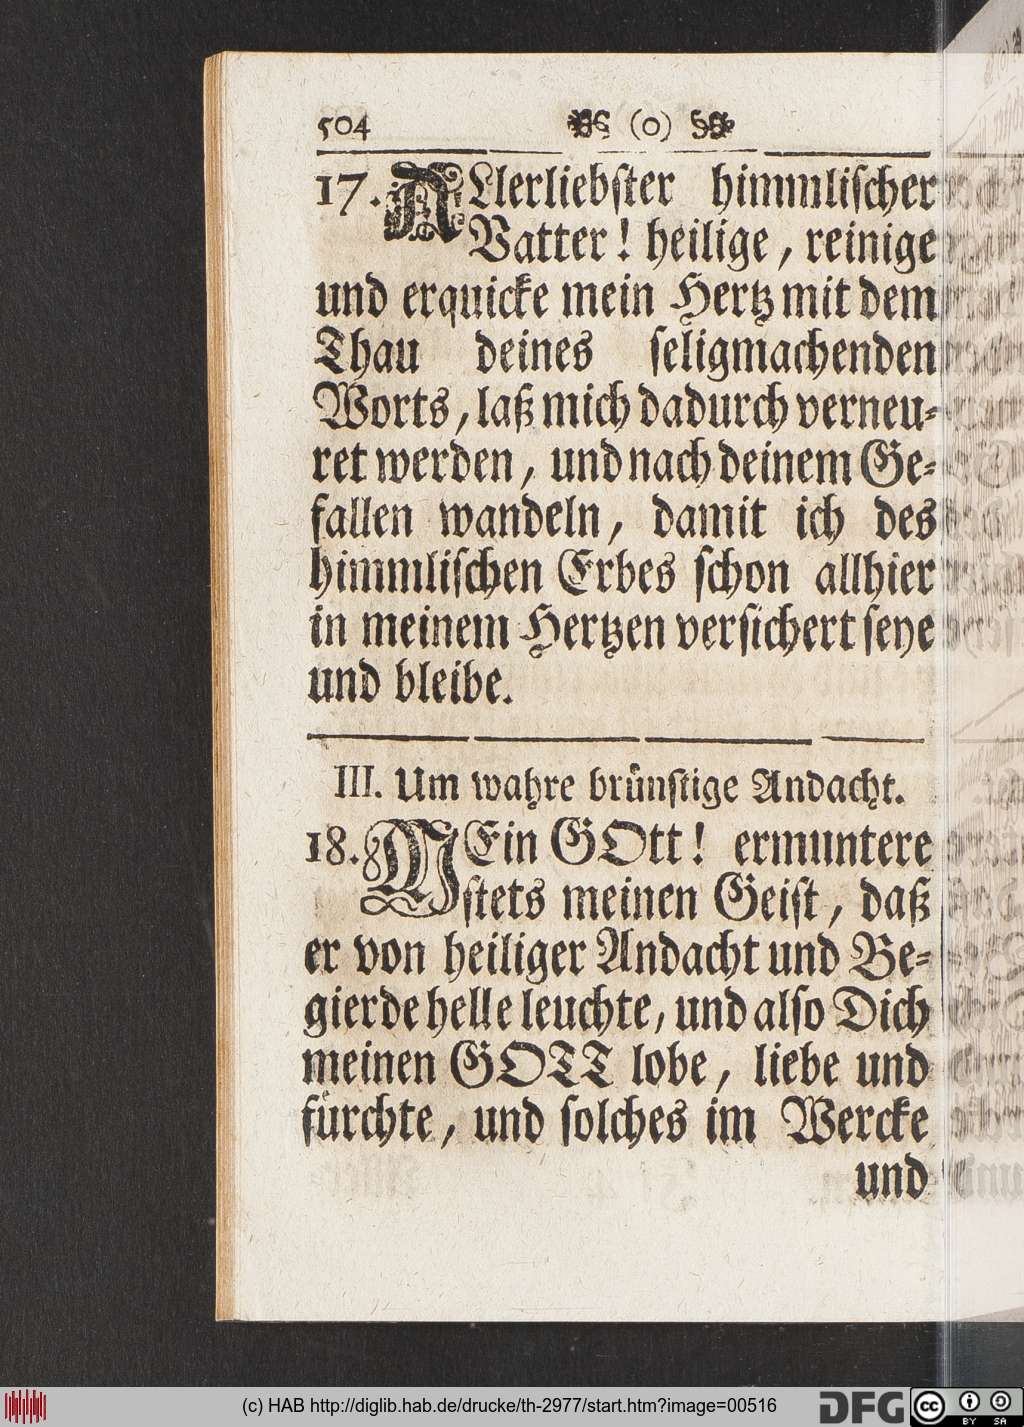 504 (o)
17. ALlerliebster himmlischer
Vatter! heilige, reinige
und erquicke mein Hertz mit dem
Thau deines seligmachenden
Worts, laß mich dadurch verneu-
ret werden, und nach deinem Ge-
fallen wandeln, damit ich des
himmlischen Erbes schon allhier
in meinem Hertzen versichert seye
und bleibe.
III. Um wahre brünstige Andacht.
18. MEin GOtt! ermuntere
stets meinen Geist, daß
er von heiliger Andacht und Be-
gierde helle leuchte, und also Dich
meinen GOTT lobe, liebe und
fürchte, und solches im Wercke
und
(c) HAB http://diglib.hab.de/drucke/th-2977/start.htm?image=00516
DFG cc BY SA